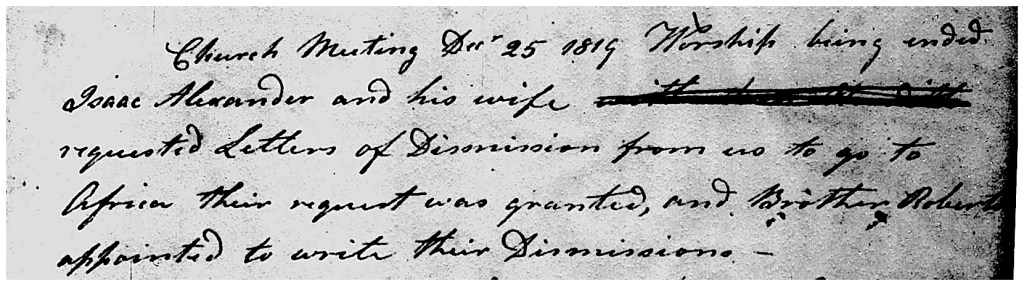 Church Meeting Decr 25 1819 Worship being ended
Isaac Alexander and his wife
requested Letters of Dismission from us to go to
Africa their request was granted, and Brother Roberts
appointed to write their Dismissions —